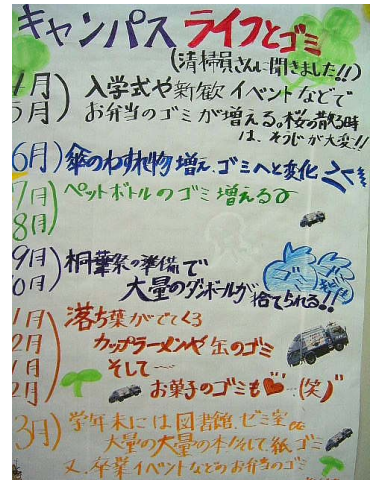 キャンパスライフとゴミ
(清掃員さんに聞きました!!)
4月
5月)
入学式や新歓イベントなどで
お弁当のゴミが増える。桜の散る時
は、そうじが大変!!
6月)傘のわすれ物増え、ゴミへと変化
7月)ペットボトルのゴミ増える
8月
9月)桐葉祭の準備で
10月
大量のダンボールが捨てられる!!
1月
落ち葉がでてくる
2月
カップラーメンや缶のゴミ
1月
そして…
2月
お菓子のゴミも♥…(笑)
3月)学年末には図書館、ゼミ室
大量の大量の本そして紙ゴミ
又、卒業イベントなどのお弁当のゴミ